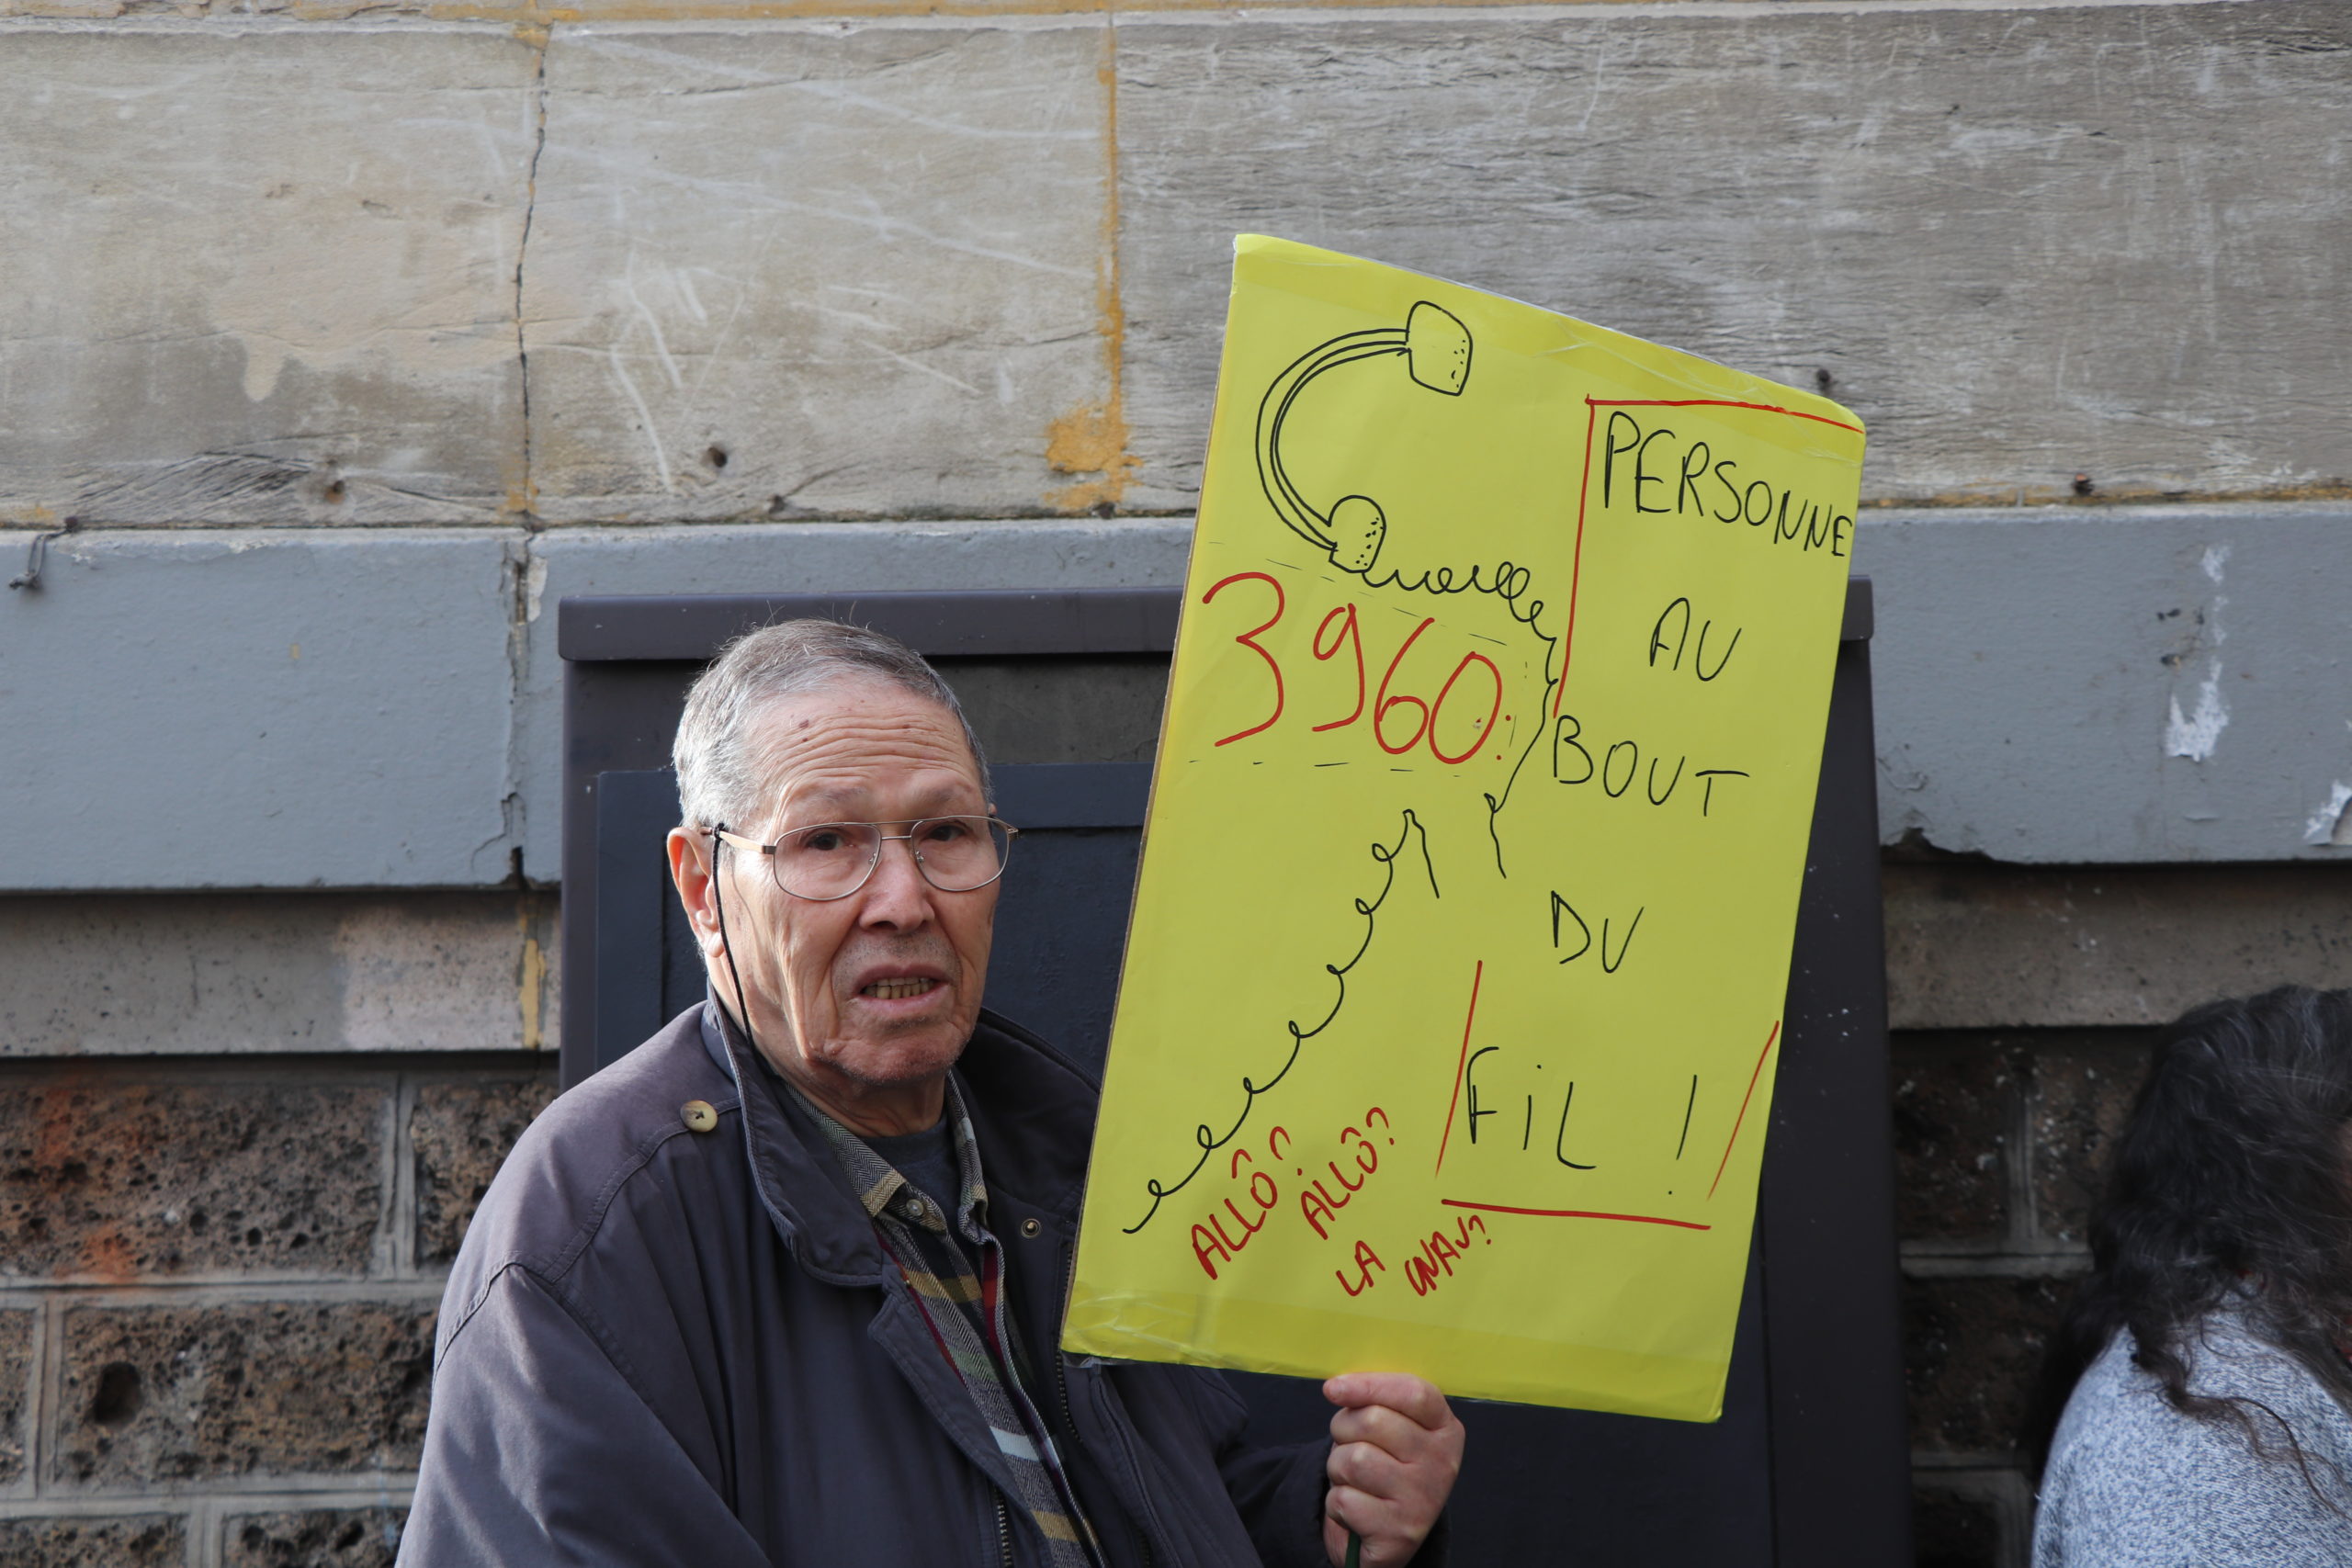 3960:
PERSONNE
AU
BOUT
DU
FiL !
ALLÔ? ALLÔ?
LA CNAV?